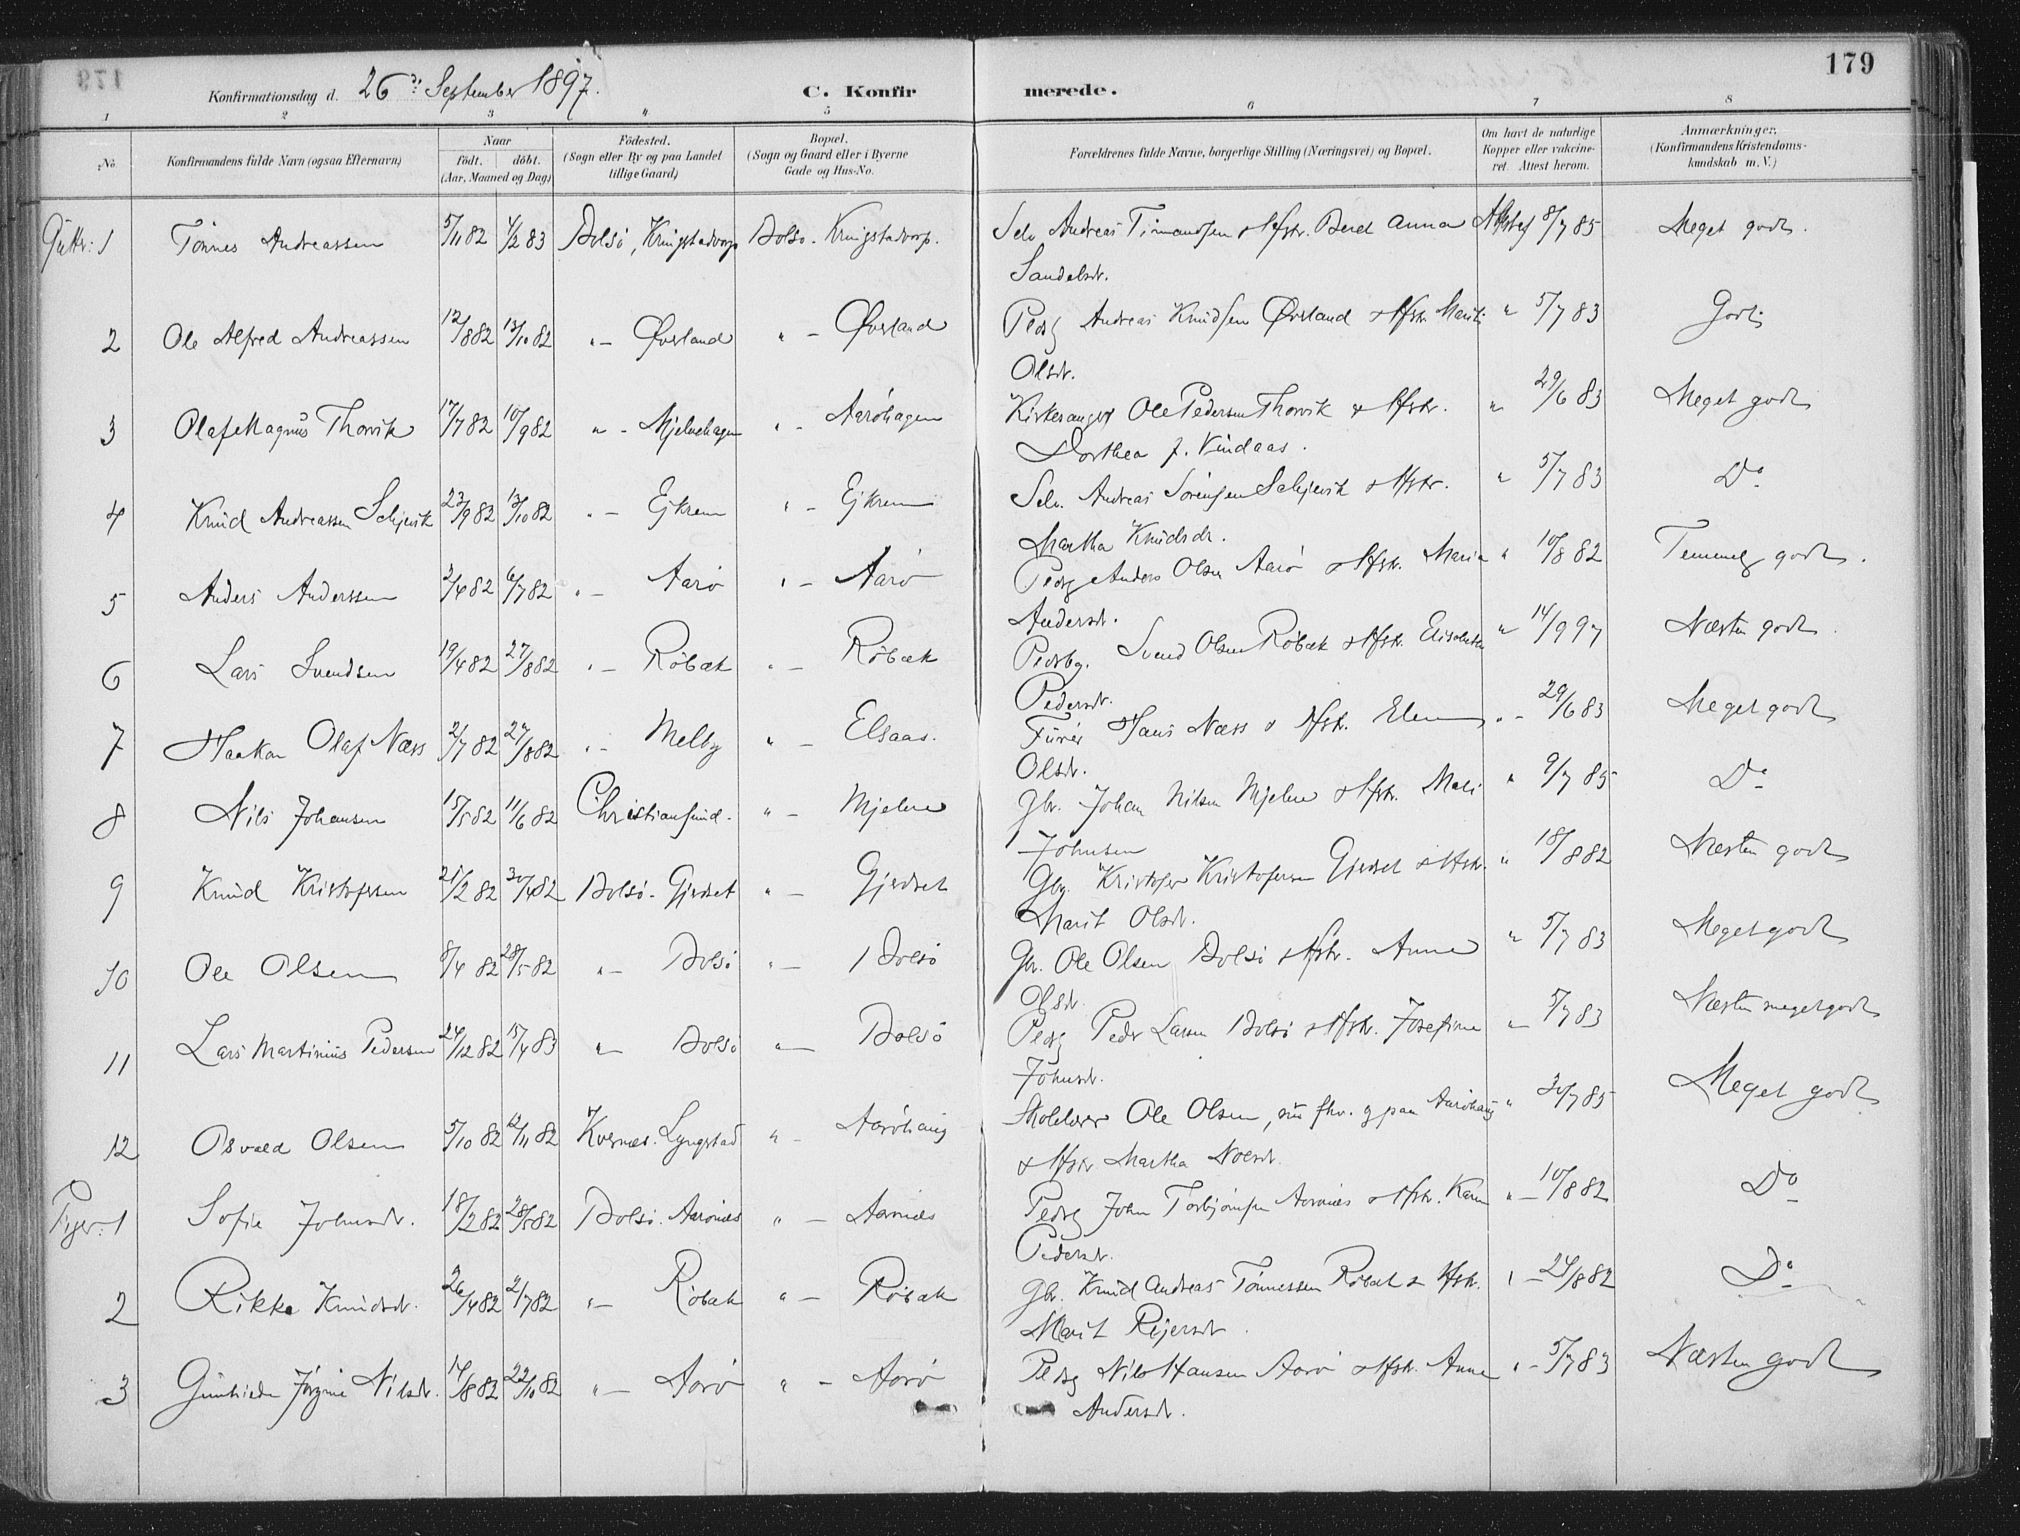 179
Konfirmationsdag d. 26de September 1897. C. Konfirmerede.
1 2 3 4 5 6 7 8
No. Konfirmandens fulde Navn (ogsaa Efternavn) Naar födt. döbt. (Aar, Maaned og Dag) Födested. (Sogn eller By og paa Landet tillige Gaard) Bopæl. (Sogn og Gaard eller i Byerne Gade og Hus-No. Forældrenes fulde Navne, borgerlige Stilling (Næringsvei) og Bopæl. Om havt de naturlige Kopper eller vakcineret. Attest herom. Anmærkninger. (Konfirmandens Kristendomskundskab m. V.)
Gutter: 1 Tönnes Andreassen 5/11 82 1/2 83 Bolsö, Kringstadvorp Bolsö - Kringstadvorp. Selv. Andreas & Hstr. Beret Anna 8/7 85 Meget godt.
Sandelsdr.
2 Ole Alfred Andreassen 12/8 82 13/10 82 " - Øverland " - Øverland Pedsg Andreas Knudsen Øverland & Hstr. Marit " 5/7 83 Godt
Olsdr.
3 Olaf Magnus Thorvik 17/7 82 10/9 82 " - Mjelvehagen " - Aaröhagen Kirkesanger Ole Pedersen Thorvik & Hstr. " 29/6 83 Meget godt
Dorthea f. Vindaas.
4 Knud Andreassen 23/9 82 13/10 82 " - Ejkrem " - Ejkrem Selv. Andreas Sörensen & Hstr. " 5/7 83 Do
Martha Knudsdr.
5 Anders Anderssen 2/4 82 6/7 82 " - Aarö " - Aarö Pedsg Anders Olsen Aarö & Hstr. Maria " 10/8 82 Temmelg godt.
Andersdr.
6 Lars Svendsen 19/4 82 27/8 82 " - Röbæk " - Röbæk Svend Olsen Röbæk & Hstr. Elisabeth " 14/9 97 Næsten godt.
Pedersdr.
7 Haakon Olaf Næss 2/7 82 27/8 82 " - Melby " - Elsaas. Furér Hans Næss & Hstr. Elen " - 29/6 83 Meget godt
Olsdr.
8 Nils Johansen 15/5 82 11/6 82 Christiansund. " - Mjelve Gbr. Johan Nilsen Mjelve & Hstr. Mali " 9/7 85 Do
Johnsen
9 Knud Kristofersen 21/2 82 30/4 82 Bolsö - Gjerdset " - Gjerdset Gbr. Kristofer Kristofersen Gjerdset & Hstr. " 18/8 82 Næsten godt
Marit Olsdr.
10 Ole Olsen 8/4 82 28/5 82 " - Bolsö " - Bolsö Gbr. Ole Olsen Bolsö & Hstr. Anne " 5/7 83 Meget godt
Olsdr.
11 Lars Martinius Pedersen 24/12 82 15/4 83 " - Bolsö " - Bolsö Pedsg Peder Larsen Bolsö & Hstr. Josefine " 5/7 83 Næsten meget godt
Johnsdr.
12 Osvald Olsen 5/10 82 12/11 82 Kvernæs. Lyngstad " - Aaröhaug Skolelærer Ole Olsen, paa Aaröhaug " 30/7 85 Meget godt
& Hstr Martha
Piger: 1 Sofie Johnsdr. 18/2 82 28/5 82 Bolsö. Aarönes " - Aarönes Pedsg John Torbjörnsen Aarönes & Hstr. Karen " - 10/8 82 Do
Pedersdr.
2 Rikke Knudsdr. 26/4 82 2/7 82 " - Röbæk " - Röbæk Gbr. Knud Andreas Tönnessen Röbæk & Hstr. " - 24/8 82 Do
Marit Rejersdr.
3 Gunhilde Jörgine Nilsdr. 14/8 82 22/10 82 " - Aarö " - Aarö Pedsg Nils Hansen Aarö & Hstr. Anne " - 5/7 83 Næsten godt
Andersdr.